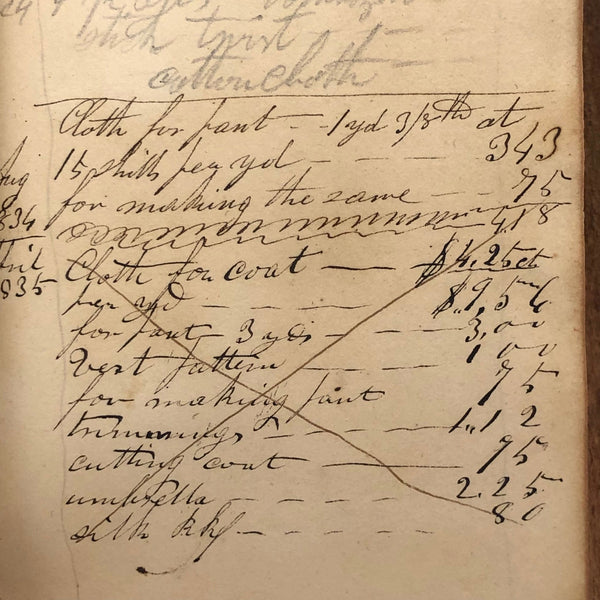 stick twist
cotton cloth
Cloth for pant — 1 yd 3/8th at
15 shills per yd - - - 343
for making the same - - 75
418
Cloth for coat — $4,25 ct
per yd - - - - $9,56
for pant 3 yds - - - 3,00
Vest pattern - - - 1 00
for making pant 75
trimmings - - - - 1,12
cutting coat — 75
umbrella - - - - 2.25
silk hkf - - - - 80
834
835